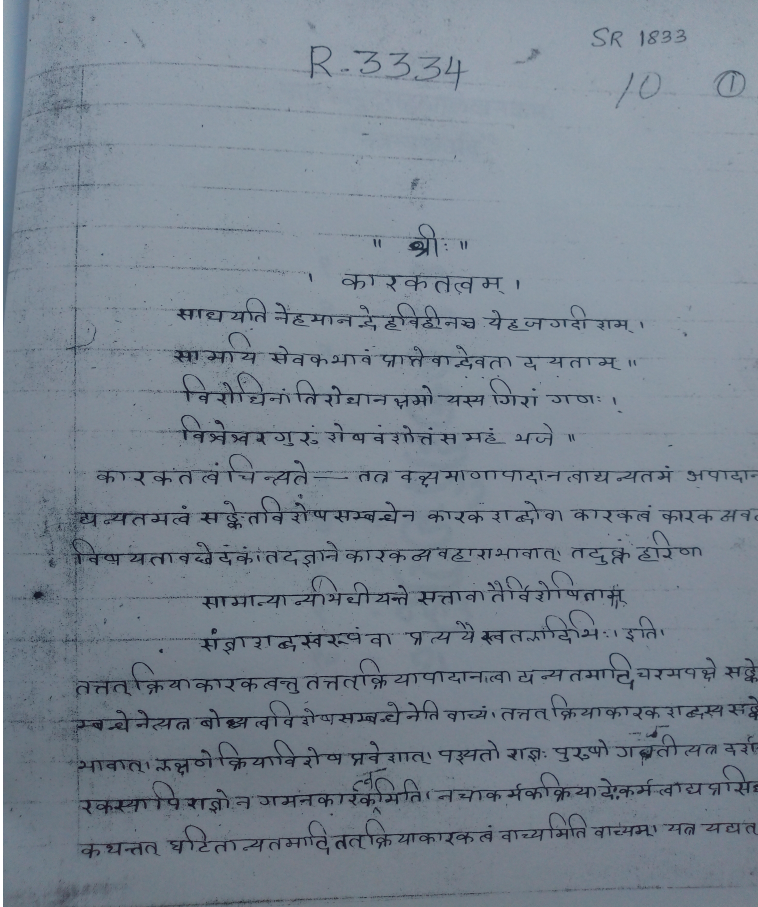 SR 1833
R-3334
10 ①
॥ श्रीः ॥
। कारकतत्वम् ।
साधयति नेहमान देहविहीनञ्च येह जगदीशम् ।
सा मयि सेवकभावं प्राप्तेवान्देवता दयताम् ॥
विरोधिनां तिरोधानक्षमो यस्य गिरां गणः ।
विश्वेश्वरगुरुं शेषवंशोत्तंसमहं भजे ॥
कारकतत्वं चिन्त्यते — तत्र वक्ष्यमाणापादानत्वाद्यन्यतमं अपादान
द्यन्यतमत्वं सङ्केतविशेषसम्बन्धेन कारकशब्दोवा कारकत्वं कारकव्यव
विषयतावच्छेदकं। तदज्ञाने कारकव्यवहाराभावात्। तदुक्तं हरिणा
सामान्यान्यभिधीयन्ते सत्तावा तैर्विशेषिता
संज्ञाशब्दस्वरूपंवा प्रत्ययैस्त्वतलादिभिः। इति।
तत्तत्क्रियाकारकत्वन्तु तत्तत्क्रियापादानत्वाद्यन्यतमादि चरमपक्षे सङ्के
म्बन्धेनेत्यत्र बोध्यत्वविशेषसम्बन्धेनेति वाच्यं। तत्तत्क्रियाकारकशब्दस्य सङ्के
भावात्। लक्षणे क्रियाविशेष प्रवेशात्। पश्यतो राज्ञः पुरुषो गच्छतीत्यत्र दर्श
रकस्यापि राज्ञो न गमनकारकत्वमिति। नचाकर्मकक्रियादेः कर्मत्वाद्यप्रसिद्ध
कथन्तत् घटितान्यतमादि तत्क्रियाकारकत्वं वाच्यमिति वाच्यम्। यत्र यद्यत